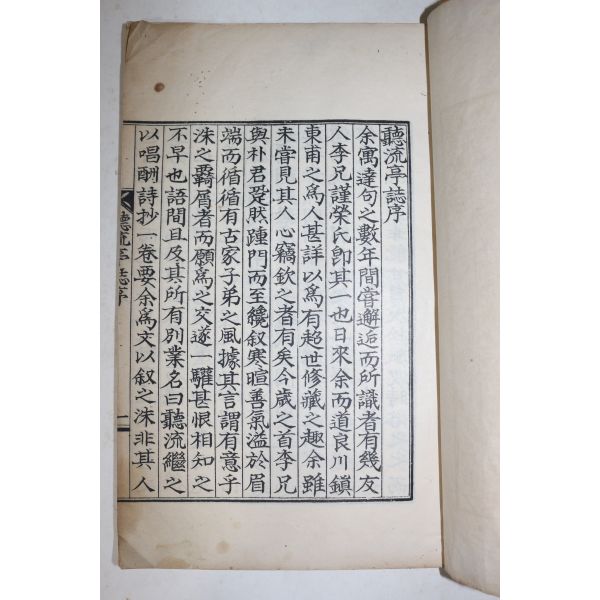 聽流亭誌序
余寓達句之數年間嘗邂逅而所識者有幾友
人李兄謹榮氏卽其一也日來余而道良川鎮
東甫之爲人甚詳以爲有超世修藏之趣余雖
未嘗見其人心竊欽之者有矣今歲之首李兄
與朴君跫然踵門而至纔叙寒暄善氣溢於眉
端而循循有古家子弟之風據其言謂有意乎
洙之覉屑者而願爲之交遂一驩甚恨相知之
不早也語間且及其所有別業名曰聽流繼之
以唱酬詩抄一卷要余爲文以叙之洙非其人
聽流亭誌序
一